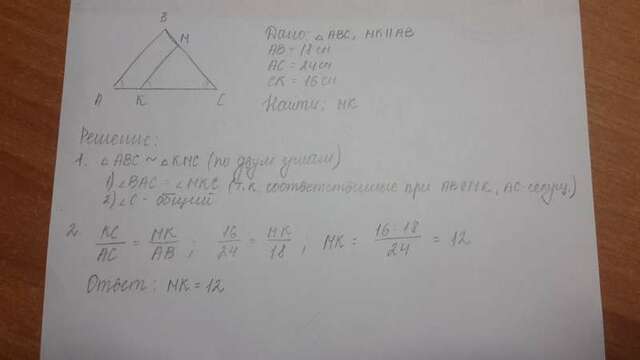 B
M
A K C
Дано: △ABC, MK||AB
AB = 18 см
AC = 24 см
CK = 16 см
Найти: MK
Решение:
1. △ABC ~ △KMC (по двум углам)
1) ∠BAC = ∠MKC (т.к. соответственные при AB||MK, AC-секущ.)
2) ∠C - общий
2. KC/AC = MK/AB ; 16/24 = MK/18 ; MK = 16·18/24 = 12
Ответ: MK = 12